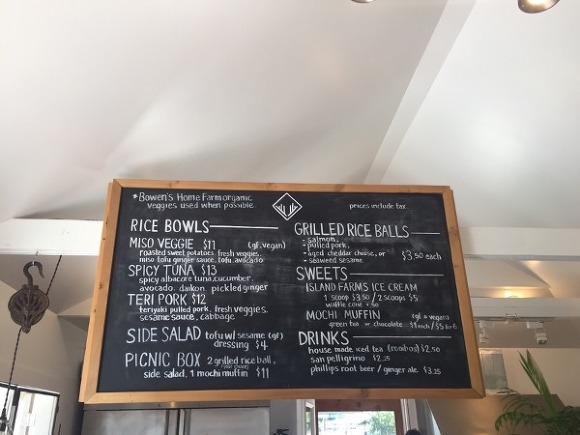 *Bowen's Home Farm organic
veggies used when possible
prices include tax.
RICE BOWLS
MISO VEGGIE $11 (gf, vegan)
roasted sweet potatoes, fresh veggies,
miso tofu ginger sauce, tofu, avocado
SPICY TUNA $13
spicy albacore tuna, cucumber,
avocado, daikon, pickled ginger
TERI PORK $12
teriyaki pulled pork, fresh veggies,
sesame sauce, cabbage
SIDE SALAD tofu w/ sesame (gf)
dressing $4
PICNIC BOX 2 grilled rice ball,
side salad, 1 mochi muffin $11
GRILLED RICE BALLS
- salmon,
- pulled pork,
- aged cheddar cheese, or
- seaweed sesame $3.50 each
SWEETS
ISLAND FARMS ICE CREAM
1 scoop $3.50 / 2 scoops $5
waffle cone +50
MOCHI MUFFIN (gf & vegan)
green tea or chocolate $1 each / $5 for 6
DRINKS
house made iced tea (rooibos) $2.50
san pellegrino $2.25
phillips root beer / ginger ale $3.25